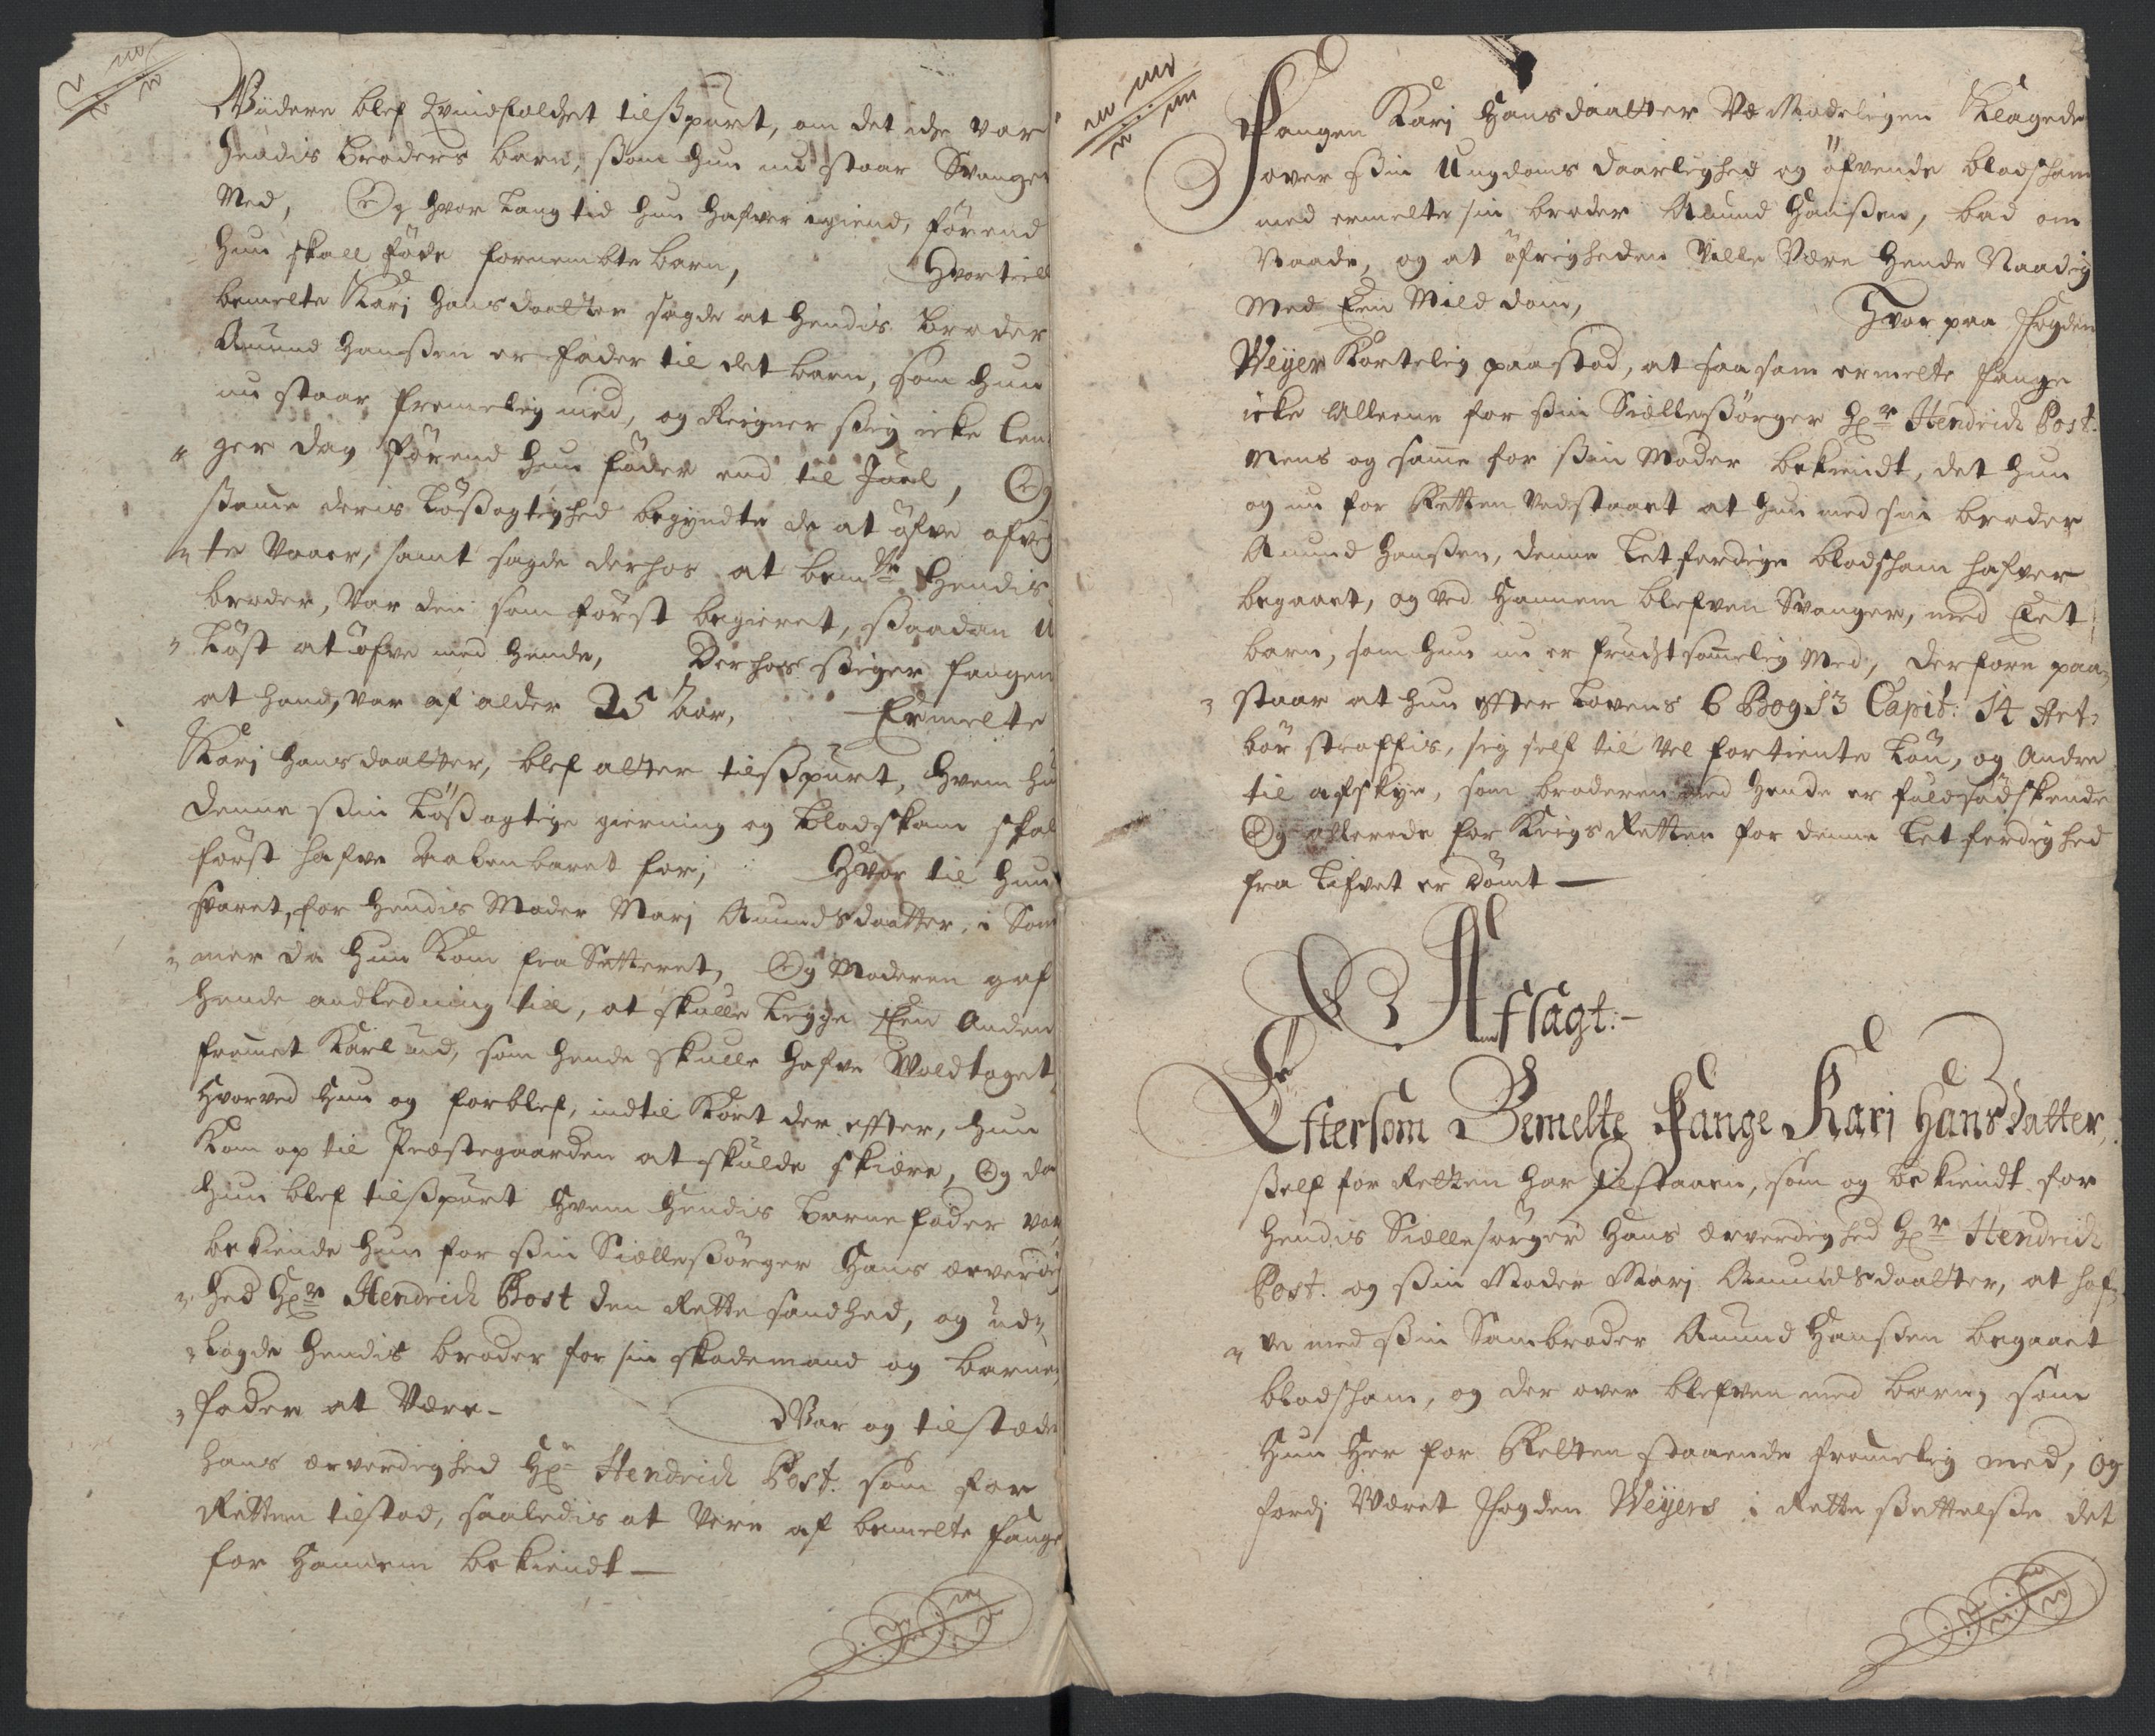 Widere blef Qvindfolchet tilßpurt, om det iche var
hendis broders barn, ßom hun nu staar Svanger
Med, Og hvor lang tid hun hafver igiend, förend
hun skall föde fornembte barn, Hvortill
bemelte Karj Hansdaatter sagde at hendis broder
Amund Hanßen er fader til det barn, som hun
nu staar fremelig med, og Reigner ßig icke len¬
ger dag förend hun föder end til Juel, Og
ßamme deris Lößagtighed begyndte de at öfve afvig¬
te Vaaer, samt sagde derhos at bemte hendis
broder, var den som först begieret, ßaadan U¬
löst at öfve med hende, Derhos ßiger fangen
at hand var af alder 25 Aar, Ermelte
Karj Hansdaatter, blef atter tilßpurt, hvem hu
denne ßin Lößagtige gierning og blodskam skal
först hafve Aabenbaret for, Hvor til hun
svaret, for hendis Moder Marj Amundsdaatter, i Som¬
mer da hun kom fra Sætteret, Og Moderen gaf
hende andledning till, at skulle legge Een Anden
fremet Karl ud, som hende skulle hafve Voldtaget
hvorved hun og forblef, indtil kort der effter, hun
kom op til Præstegaarden at skulde skiære, Og da
hun blef tilßpurt hvem hendis barnefader var,
bekiende hun for ßin Siælleßörger Hans ærverdig¬
hed Hr Hendrich Post den Rette sandhed, og ud¬
lagde hendis broder for sin skademand og barne¬
fader at Være- War og tilstæde
hans ærverdighed Hr Hendrich Post. som for
Retten tilstod, saaledis at Vere af bemelte fange
for hannem bekiendt —
Fangen Karj Hansdaatter Klagede
over ßin Ungdoms daarlighed og öfvende blodscham
med ermelte sin broder Amund Hanßen, bad om
Naade, og at öfrigheden Ville Være hende Naadig
Med Een Mild dom, Hvor paa fogden
Weyer korteleg paastod, at saasom ermelte fange
icke alleene for ßin Siælleßörger Hr Hendrich Post.
Mens og samme for ßin Moder bekiendt, det hun
og nu for Retten Vedstaaet at hun med sin broder
Amund Hanßen, denne letferdige blodscham hafver
begaaet, og ved hannem blefven Svanger, med Eet
barn, som hun nu er fruchtsommelig Med, derfore paa¬
staar at hun effter Lovens 6 Bog 13 Capit: 14 Art:
bör straffis, sig self til vel fortiente Lön, og Andre
til afskye, som broderen med hende er fuldsödskende
Og allerede for KrigsRetten for denne letferdighed
fra Lifvet er Dömt —
Afsagt:-
Eftersom Bemelte Fange Karj HansDatter,
ßelf for Retten har tilstaaen, som og bekiendt for
hendis Siællesörger Hans ærverdighed Hr Hendrich
Post. og ßin Moder Marj Amundsdaatter, at haf¬
ve med ßin Sambroder Amund Hanßen begaaet
blodscham, og der over blefven med barn, som
hun her for Retten staaende fremelig med, og
fordj Været fogden Weyers i Rette ßettelße det